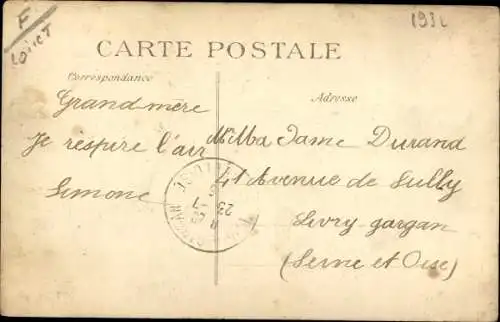 F
LOIRET
193
CARTE POSTALE
Correspondance
Adresse
Grand mère
Je respire l'air
Simone
Dame Durand
41 Avenue de Sully
Livry-gargan
(Seine et Oise)
23
7